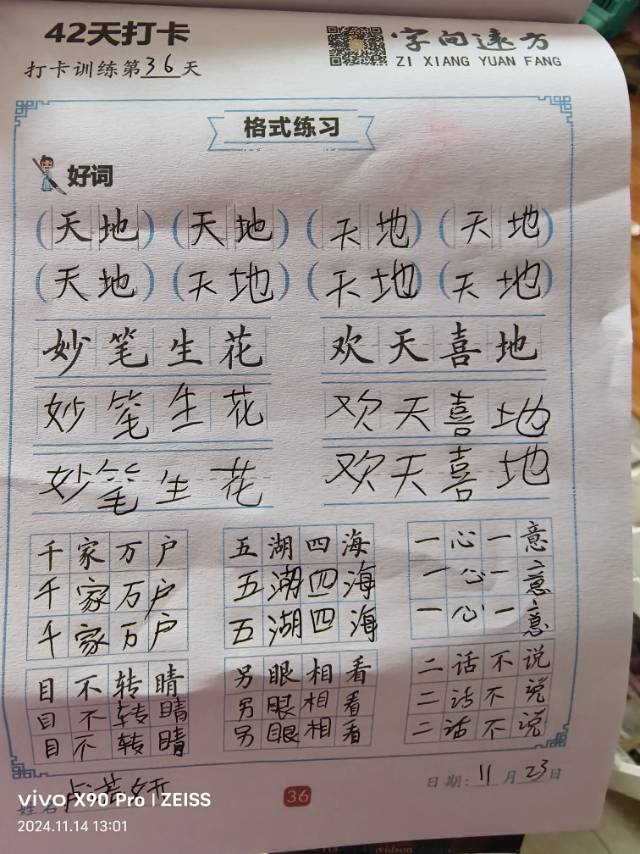 42天打卡
字向远方
打卡训练第36天
ZI XIANG YUAN FANG
格式练习
好词
(天地) (天地) (天地) (天地)
(天地) (天地) (天地) (天地)
妙笔生花 欢天喜地
妙笔生花 欢天喜地
妙笔生花 欢天喜地
千家万户 五湖四海 一心一意
千家万户 五湖四海 一心一意
千家万户 五湖四海 一心一意
目不转睛 另眼相看 二话不说
目不转睛 另眼相看 二话不说
目不转睛 另眼相看 二话不说
姓名
36
日期:11月23日
vivo X90 Pro | ZEISS
2024.11.14 13:01